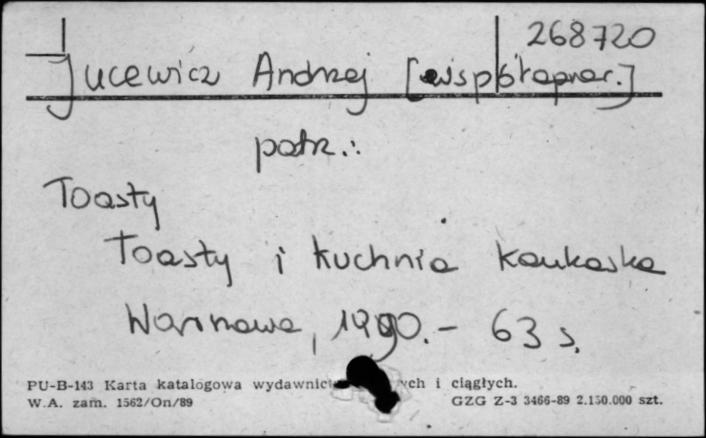 268720
Jucewicz Andrzej [współoprac.]
patrz.:
Toasty
Toasty i kuchnia kaukaska
Warszawa, 1990. – 63 s.
PU-B-143 Karta katalogowa ych i ciągłych.
W.A. zam. 1562/On/89 GZG Z-3 3466-89 2.150.000 szt.